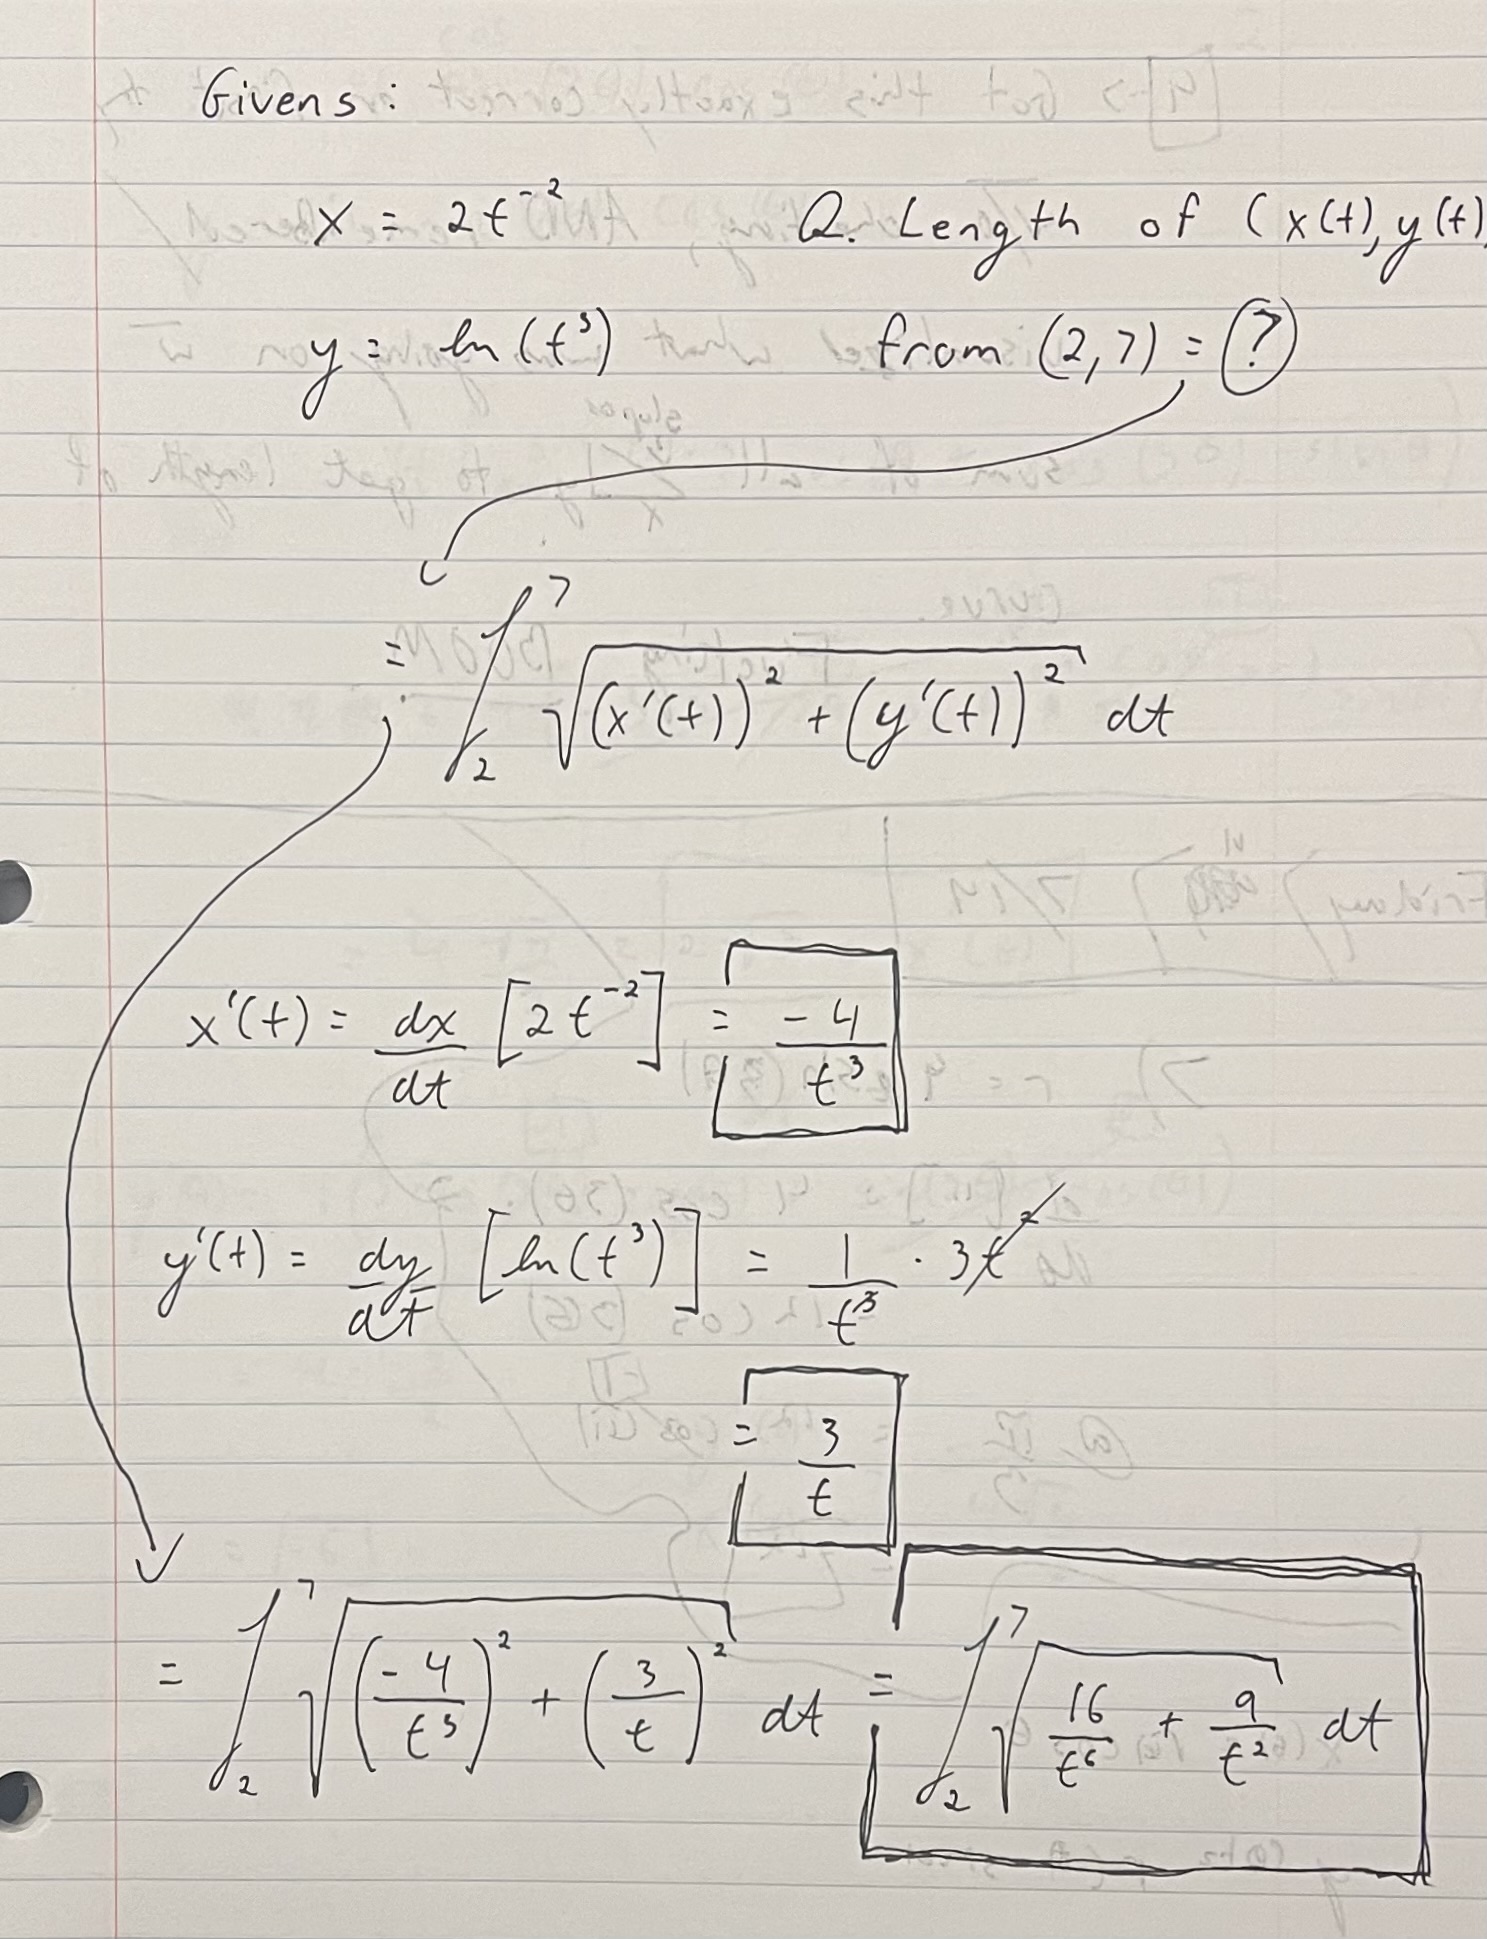 Givens:
x = 2t^-2 Q. Length of (x(t), y(t)
y = ln(t^3) from (2,7) = ?
= ∫_2^7 √((x'(t))^2 + (y'(t))^2) dt
x'(t) = dx/dt [2t^-2] = -4/t^3
y'(t) = dy/dt [ln(t^3)] = 1/t^3 · 3t^2
= 3/t
= ∫_2^7 √((-4/t^3)^2 + (3/t)^2) dt = ∫_2^7 √(16/t^6 + 9/t^2) dt